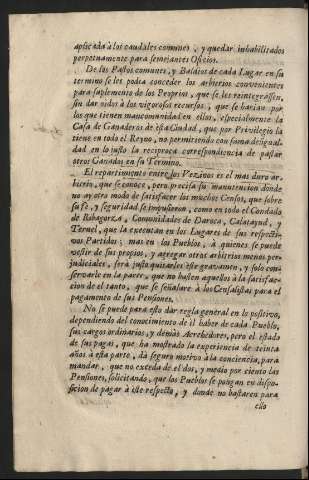 aplicada à los caudales comunes, y quedar inhabilitados
perpetuamente para semejantes Oficios.
De los Pastos comunes, y Baldios de cada Lugar en su
termino se les podrà conceder los arbitrios convenientes
para suplemento de los Proprios, que se les reintegrassen,
sin dar oidos à los vigorosos recursos, que se harian por
los que tienen mancomunidad en ellos, especialmente la
Casa de Ganaderos de esta Ciudad, que por Privilegio la
tiene en todo el Reyno, no permitiendo con suma desigual-
dad en lo justo la reciproca correspondencia de pastar
otros Ganados en su Termino.
El repartimiento entre los Vezinos es el mas duro ar-
bitrio, que se conoce, pero precisa su manutencion donde
no ay otro modo de satisfacer los muchos Censos, que sobre
su fè, y seguridad se impusieron, como en todo el Condado
de Ribagorza, Comunidades de Daroca, Calatayud, y
Teruel, que la executàn en los Lugares de sus respecti-
vos Partidos; mas en los Pueblos, à quienes se puede
vestir de sus propios, y agregar otros arbitrios menos per-
judiciales, serà justo quitarles este gravamen, y solo con-
servarle en la parte, que no basten aquellos à la satisfac-
cion de el tanto, que se señalare à los Censalistas para el
pagamento de sus Pensiones.
No se puede para esto dàr regla general en lo positivo,
dependiendo del conocimiento de el haber de cada Pueblo,
sus cargos ordinarios, y demàs Acrehedores, pero el estado
de sus pagas, que ha mostrado la experiencia de veinte
años à esta parte, dà seguro motivo à la conciencia, para
mandar, que no exceda de el dos, y medio por ciento las
Pensiones, solicitando, que los Pueblos se pongan en dispo-
sicion de pagar à este respecto, y donde no bastaren para
ello